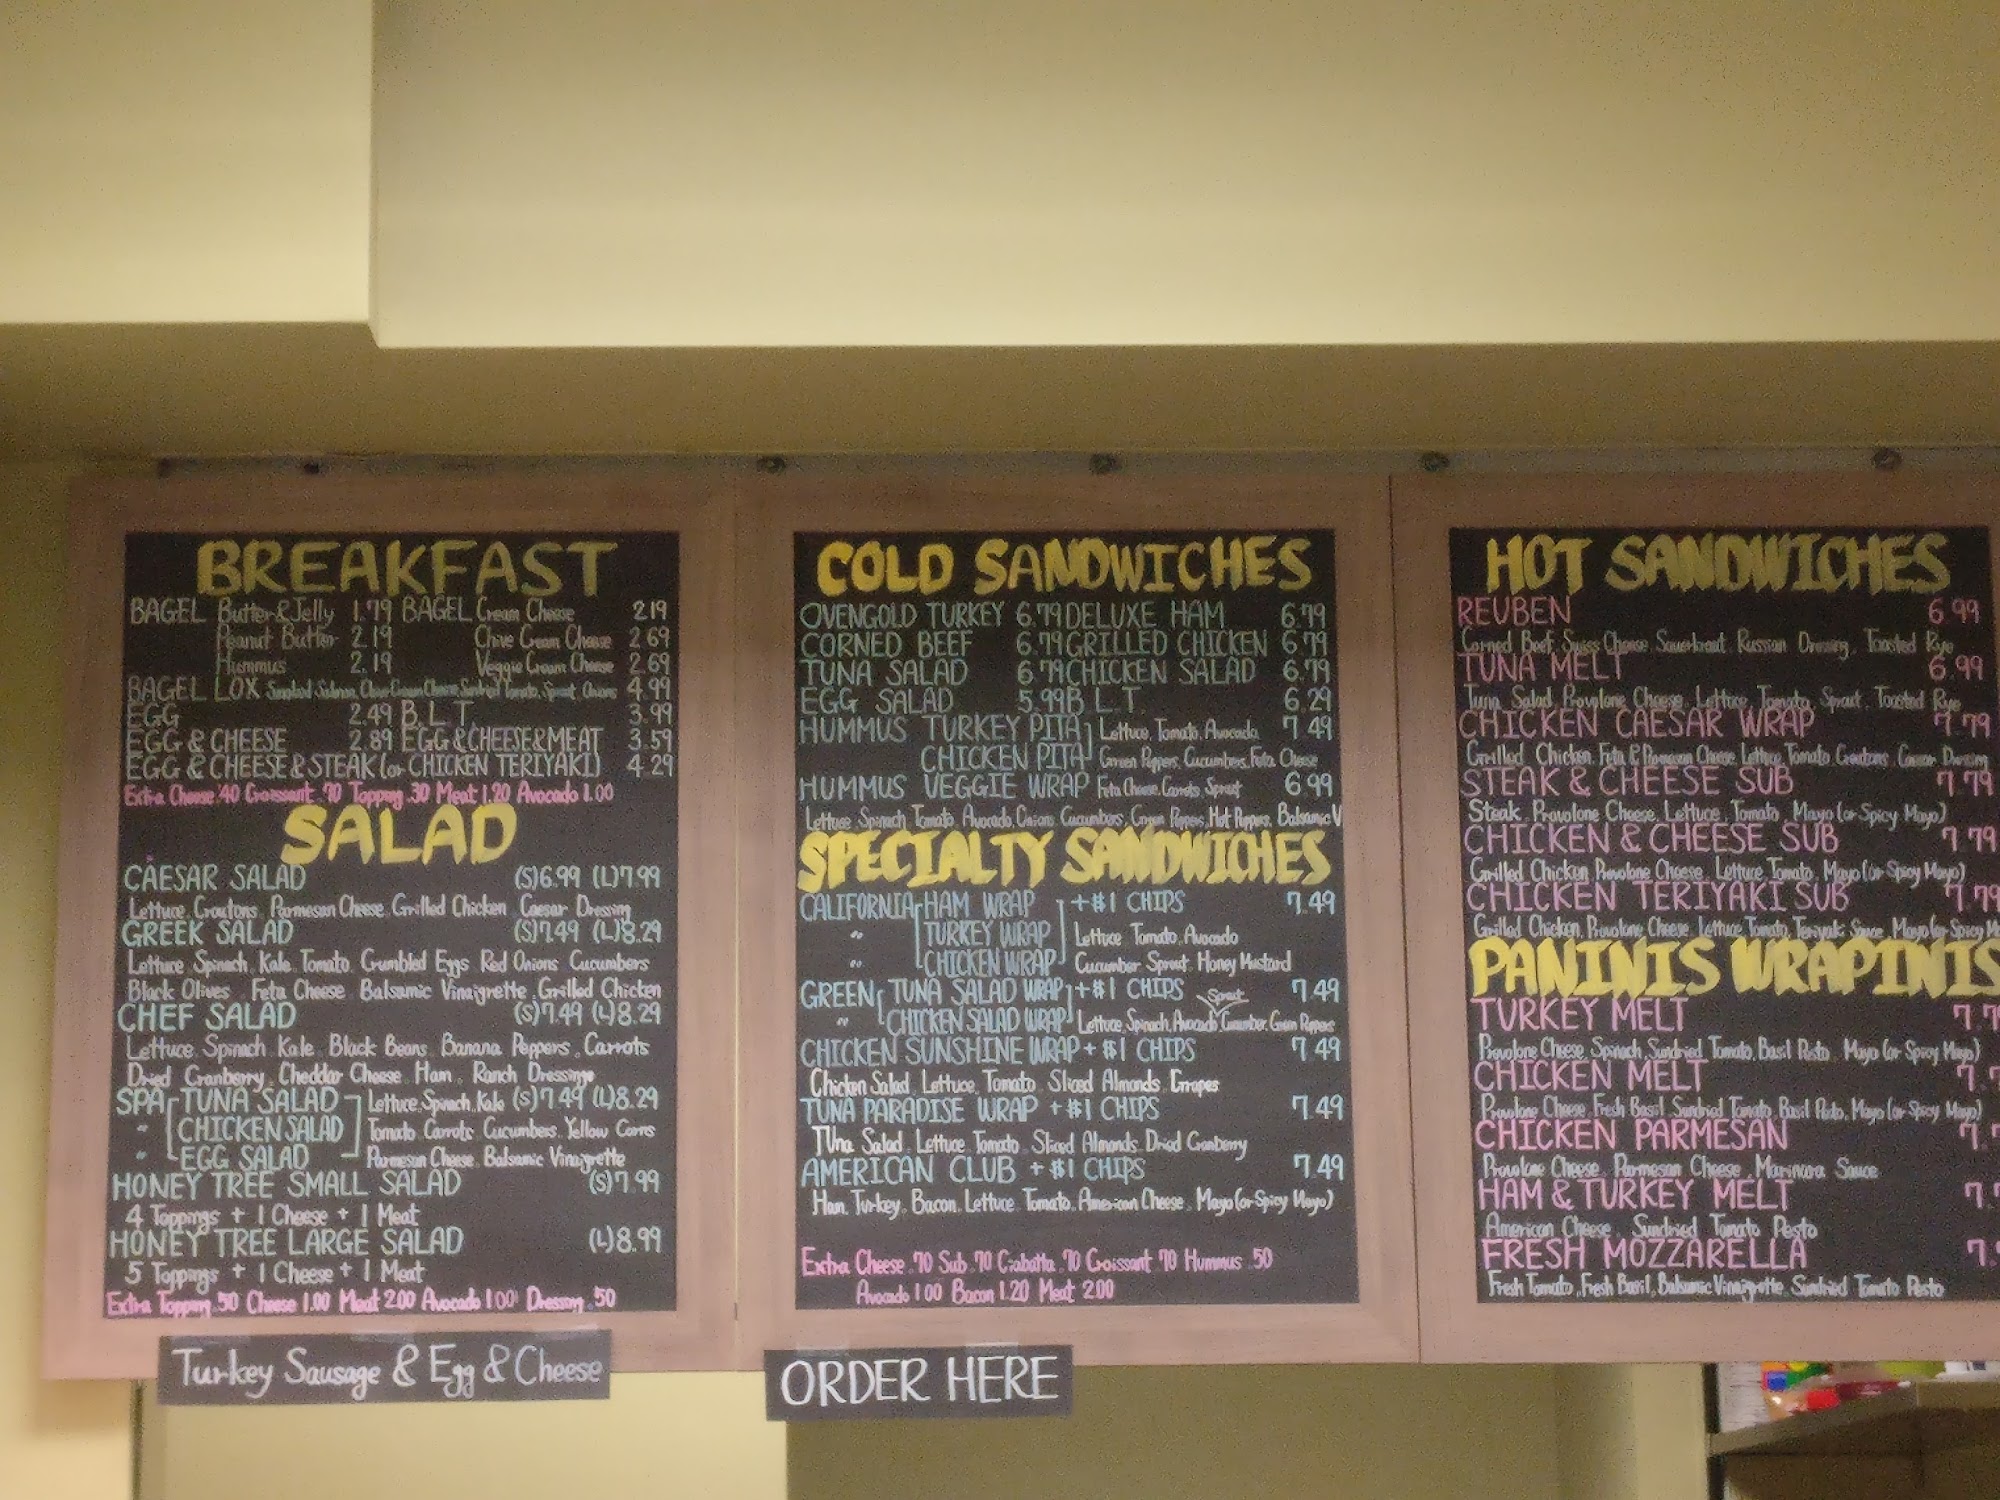 BREAKFAST
BAGEL Butter & Jelly 1.79 BAGEL Cream Cheese 2.19
Peanut Butter 2.19 Chive Cream Cheese 2.69
Hummus 2.19 Veggie Cream Cheese 2.69
BAGEL LOX Smoked Salmon, Chive Cream Cheese, Sundried Tomato, Sprout, Onions 4.99
EGG 2.49 B.L.T. 3.99
EGG & CHEESE 2.89 EGG & CHEESE & MEAT 3.59
EGG & CHEESE & STEAK (or CHICKEN TERIYAKI) 4.29
Extra Cheese .40 Croissant .70 Topping .30 Meat 1.20 Avocado 1.00
SALAD
CAESAR SALAD (S)6.99 (L)7.99
Lettuce, Croutons, Parmesan Cheese, Grilled Chicken, Caesar Dressing
GREEK SALAD (S)7.49 (L)8.29
Lettuce, Spinach, Kale, Tomato, Crumbled Eggs, Red Onions, Cucumbers
Black Olives, Feta Cheese, Balsamic Vinaigrette, Grilled Chicken
CHEF SALAD (S)7.49 (L)8.29
Lettuce, Spinach, Kale, Black Beans, Banana Peppers, Carrots
Dried Cranberry, Cheddar Cheese, Ham, Ranch Dressing
SPA TUNA SALAD Lettuce, Spinach, Kale (S)7.49 (L)8.29
" CHICKEN SALAD Tomato, Carrots, Cucumbers, Yellow Corns
" EGG SALAD Parmesan Cheese, Balsamic Vinaigrette
HONEY TREE SMALL SALAD (S)7.99
4 Toppings + 1 Cheese + 1 Meat
HONEY TREE LARGE SALAD (L)8.99
5 Toppings + 1 Cheese + 1 Meat
Extra Topping .50 Cheese 1.00 Meat 2.00 Avocado 1.00 Dressing .50
Turkey Sausage & Egg & Cheese
COLD SANDWICHES
OVENGOLD TURKEY 6.79 DELUXE HAM 6.79
CORNED BEEF 6.79 GRILLED CHICKEN 6.79
TUNA SALAD 6.79 CHICKEN SALAD 6.79
EGG SALAD 5.99 B.L.T. 6.29
HUMMUS TURKEY PITA Lettuce, Tomato, Avocado, 7.49
CHICKEN PITA Green Peppers, Cucumbers, Feta Cheese
HUMMUS VEGGIE WRAP Feta Cheese, Carrots, Sprout 6.99
Lettuce, Spinach, Tomato, Avocado, Onions, Cucumbers, Green Peppers, Hot Peppers, Balsamic V
SPECIALTY SANDWICHES
CALIFORNIA HAM WRAP + #1 CHIPS 7.49
" TURKEY WRAP Lettuce, Tomato, Avocado
" CHICKEN WRAP Cucumber, Sprout, Honey Mustard
GREEN TUNA SALAD WRAP + #1 CHIPS Sprout 7.49
" CHICKEN SALAD WRAP Lettuce, Spinach, Avocado, Cucumber, Green Peppers
CHICKEN SUNSHINE WRAP + #1 CHIPS 7.49
Chicken Salad, Lettuce, Tomato, Sliced Almonds, Grapes
TUNA PARADISE WRAP + #1 CHIPS 7.49
Tuna Salad, Lettuce, Tomato, Sliced Almonds, Dried Cranberry
AMERICAN CLUB + #1 CHIPS 7.49
Ham, Turkey, Bacon, Lettuce, Tomato, American Cheese, Mayo (or Spicy Mayo)
Extra Cheese .70 Sub .70 Ciabatta .70 Croissant .70 Hummus .50
Avocado 1.00 Bacon 1.20 Meat 2.00
ORDER HERE
HOT SANDWICHES
REUBEN 6.99
Corned Beef, Swiss Cheese, Sauerkraut, Russian Dressing, Toasted Rye
TUNA MELT 6.99
Tuna Salad, Provolone Cheese, Lettuce, Tomato, Sprout, Toasted Rye
CHICKEN CAESAR WRAP 7.79
Grilled Chicken, Feta & Parmesan Cheese, Lettuce, Tomato, Croutons, Caesar Dressing
STEAK & CHEESE SUB 7.79
Steak, Provolone Cheese, Lettuce, Tomato, Mayo (or Spicy Mayo)
CHICKEN & CHEESE SUB 7.79
Grilled Chicken, Provolone Cheese, Lettuce, Tomato, Mayo (or Spicy Mayo)
CHICKEN TERIYAKI SUB 7.79
Grilled Chicken, Provolone Cheese, Lettuce, Tomato, Teriyaki Sauce, Mayo (or Spicy M
PANINIS WRAPINIS
TURKEY MELT 7.7
Provolone Cheese, Spinach, Sundried Tomato, Basil Pesto, Mayo (or Spicy Mayo)
CHICKEN MELT 7.7
Provolone Cheese, Fresh Basil, Sundried Tomato, Basil Pesto, Mayo (or Spicy Mayo)
CHICKEN PARMESAN 7.7
Provolone Cheese, Parmesan Cheese, Marinara Sauce
HAM & TURKEY MELT 7.7
American Cheese, Sundried Tomato Pesto
FRESH MOZZARELLA 7.
Fresh Tomato, Fresh Basil, Balsamic Vinaigrette, Sundried Tomato Pesto